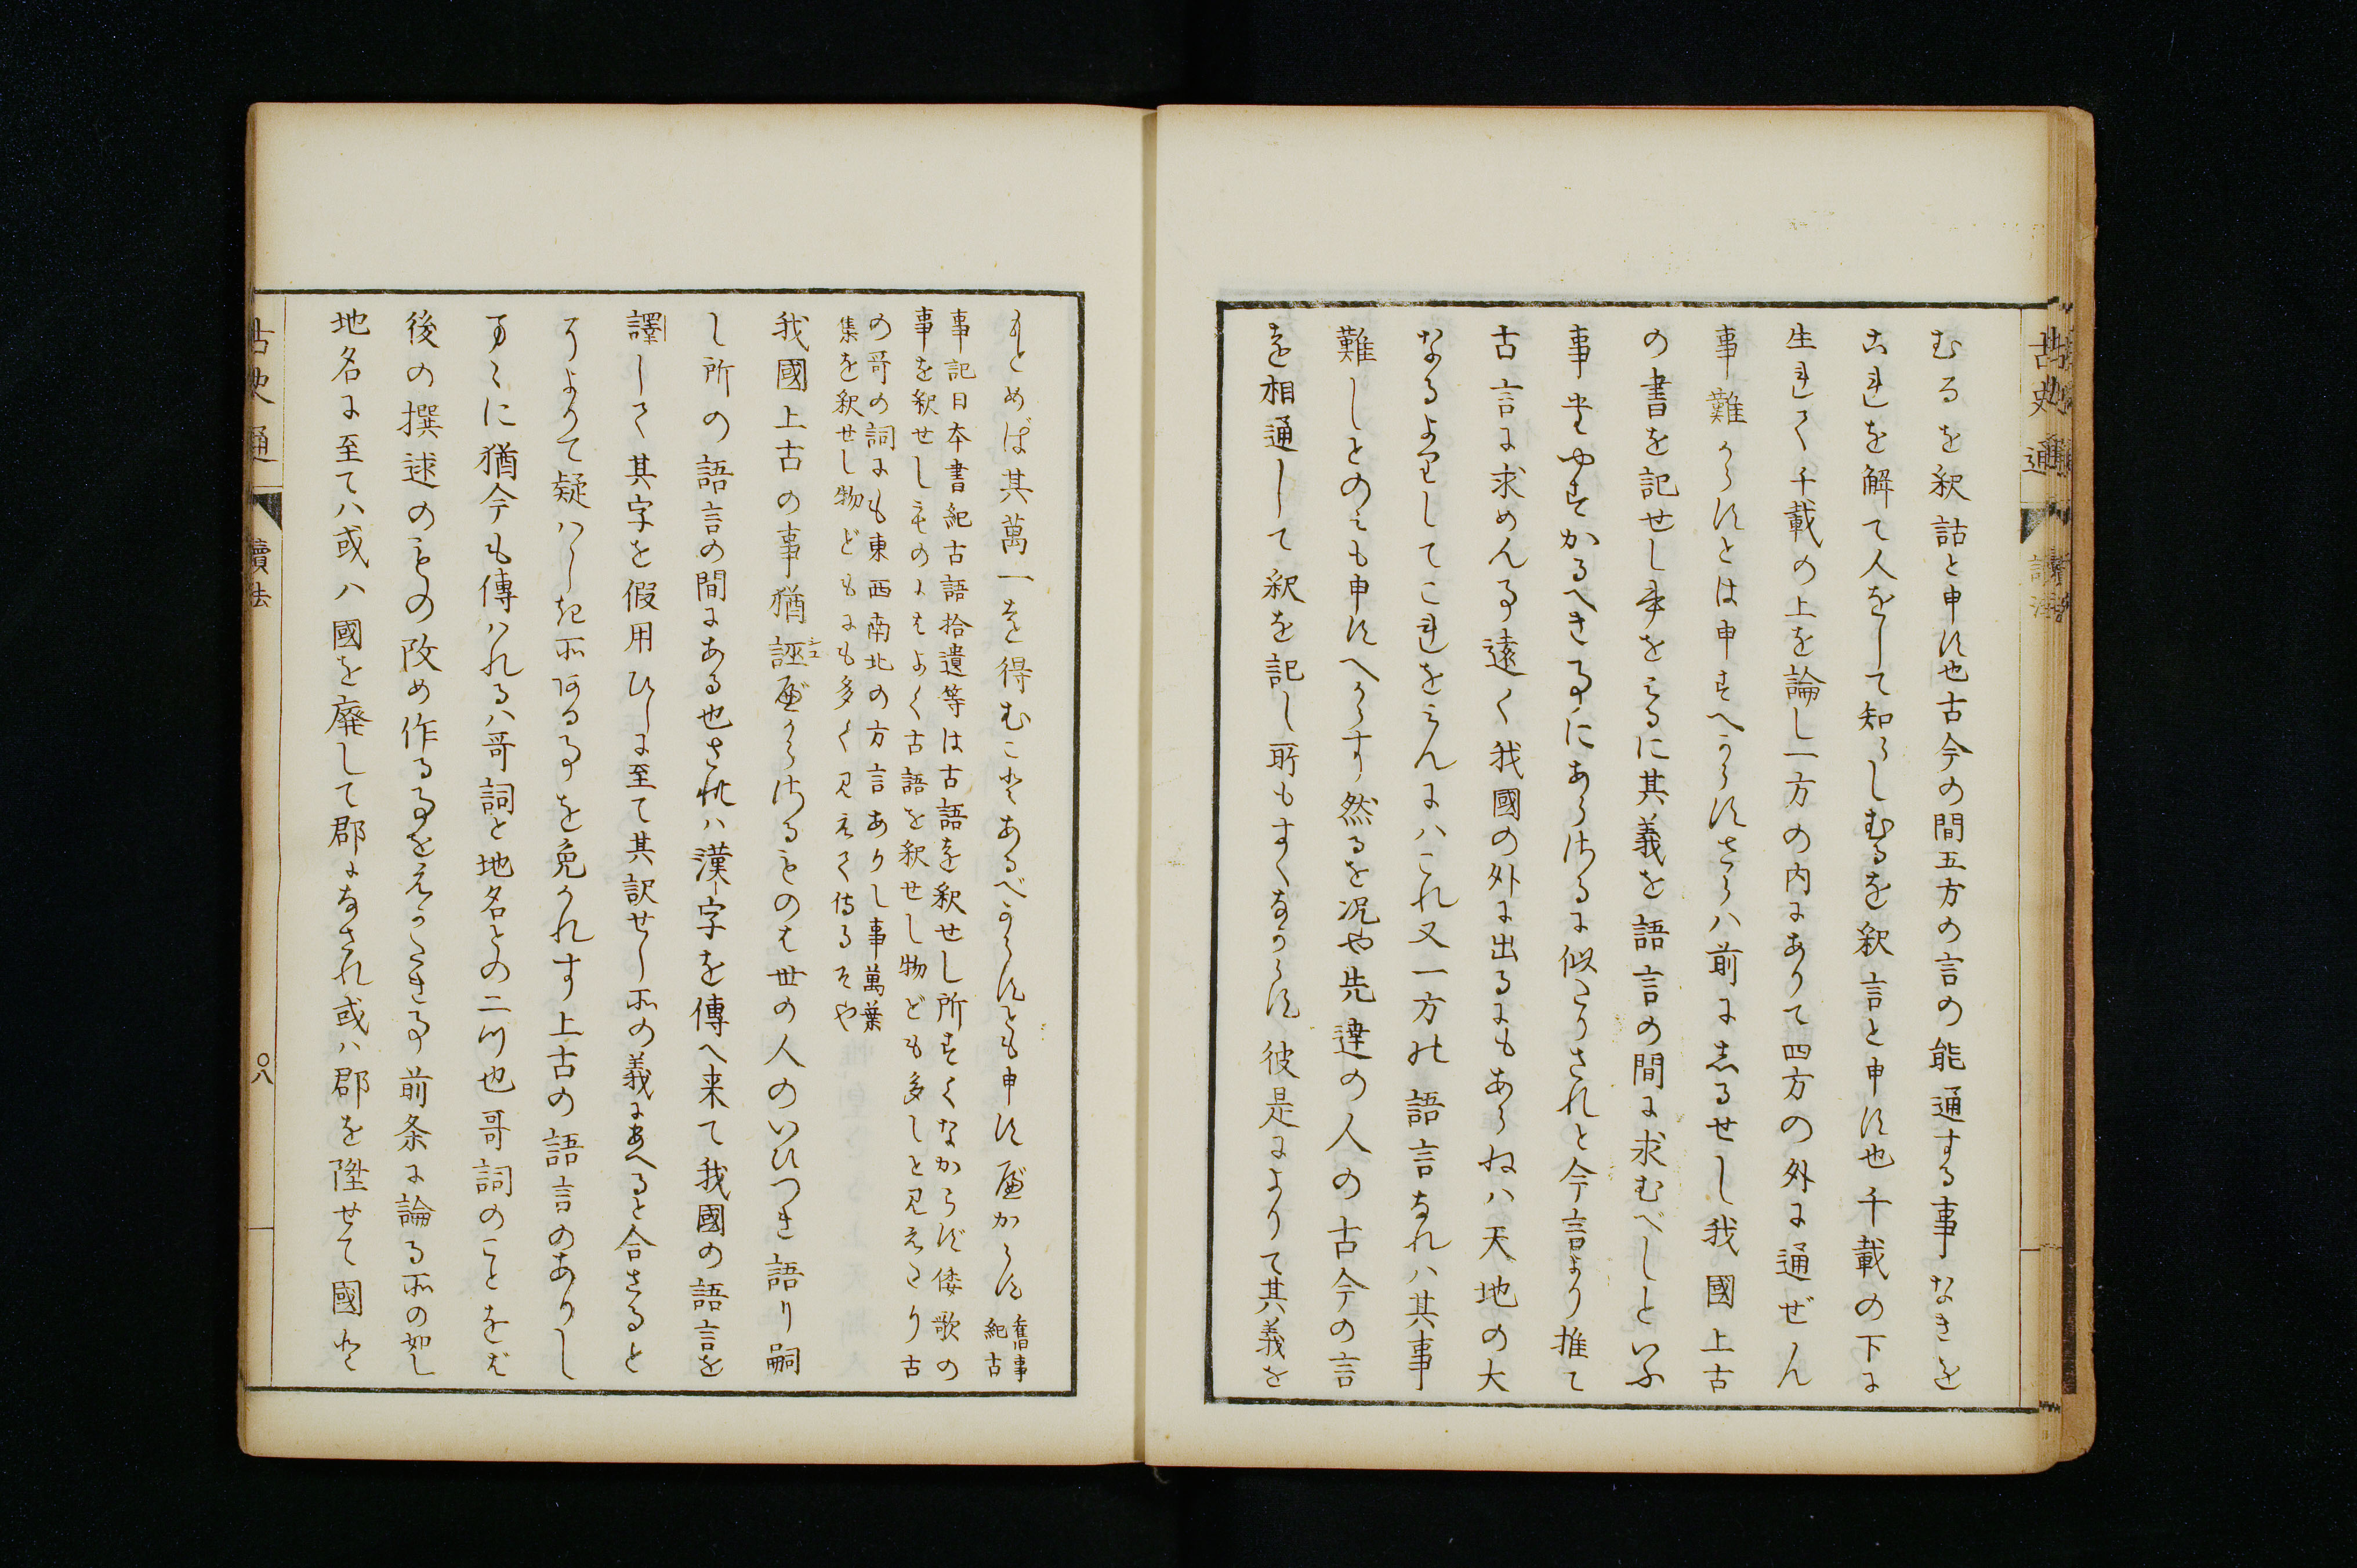 むるを釈詁と申す也古今の間五方の言の能通する事なきを
これを解て人をして知らしむるを釈言と申す也千載の下に
生れて千載の上を論し一方の内にありて四方の外に通ぜん
事難からすとは申すへからすさらハ前にしるせし我國上古
の書を記せし事をみるに其義を語言の間に求むべしといふ
事たやすかるへき事にあらさるに似たりされと今言より推て
古言に求めん事遠く我國の外に出るにもあらねハ天地の大
なるよりしてこれをみんにハこれ又一方の語言なれハ其事
難しとのみも申すへからす然るを况や先達の人の古今の言
を相通して釈を記し所もすくなからす彼是によりて其義を
もとめば其萬一を得むことあるべからすとも申す歴からす 舊事
紀古
事記日本書紀古語拾遺等は古語を釈せし所すくなからず倭歌の
事を釈せしものにもよく古語を釈せし物ども多しと見えたり古
の哥の詞にも東西南北の方言ありし事萬葉
集を釈せし物どもにも多く見えて侍るそや
我國上古の事猶誣歴からさるものは世の人のいひつき語り嗣
し所の語言の間にある也されハ漢字を傳へ来て我國の語言を
譯して其字を假用ひしに至て其訳せし所の義にあへると合さると
によりて疑ハしき所ある事を免かれす上古の語言のありし
まゝに猶今も傳ハれるハ哥詞と地名との二つ也哥詞のことをば
後の撰述のもの改め作る事をえかたき事前条に論る所の如し
地名に至てハ或ハ國を廃して郡になされ或ハ郡を陞せて國と
古史通
讀法
〇八
古史通